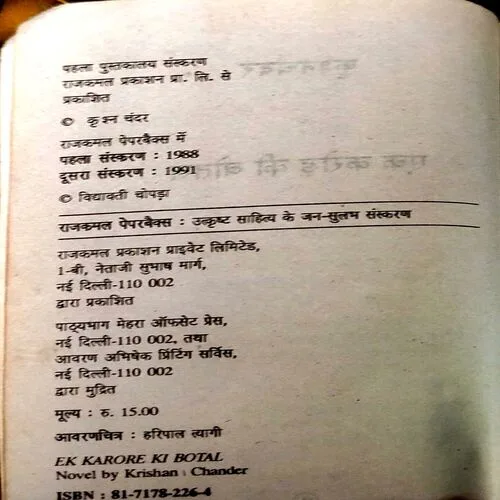 पहला पुस्तकालय संस्करण
राजकमल प्रकाशन प्रा. लि. से
प्रकाशित
© कृश्न चंदर
राजकमल पेपरबैक्स में
पहला संस्करण : 1988
दूसरा संस्करण : 1991
© विद्यावती चोपड़ा
राजकमल पेपरबैक्स : उत्कृष्ट साहित्य के जन-सुलभ संस्करण
राजकमल प्रकाशन प्राइवेट लिमिटेड,
1-बी, नेताजी सुभाष मार्ग,
नई दिल्ली-110 002
द्वारा प्रकाशित
पाठ्यभाग मेहरा ऑफसेट प्रेस,
नई दिल्ली-110 002, तथा
आवरण अभिषेक प्रिंटिंग सर्विस,
नई दिल्ली-110 002
द्वारा मुद्रित
मूल्य : रु. 15.00
आवरणचित्र : हरिपाल त्यागी
EK KARORE KI BOTAL
Novel by Krishan Chander
ISBN : 81-7178-226-4